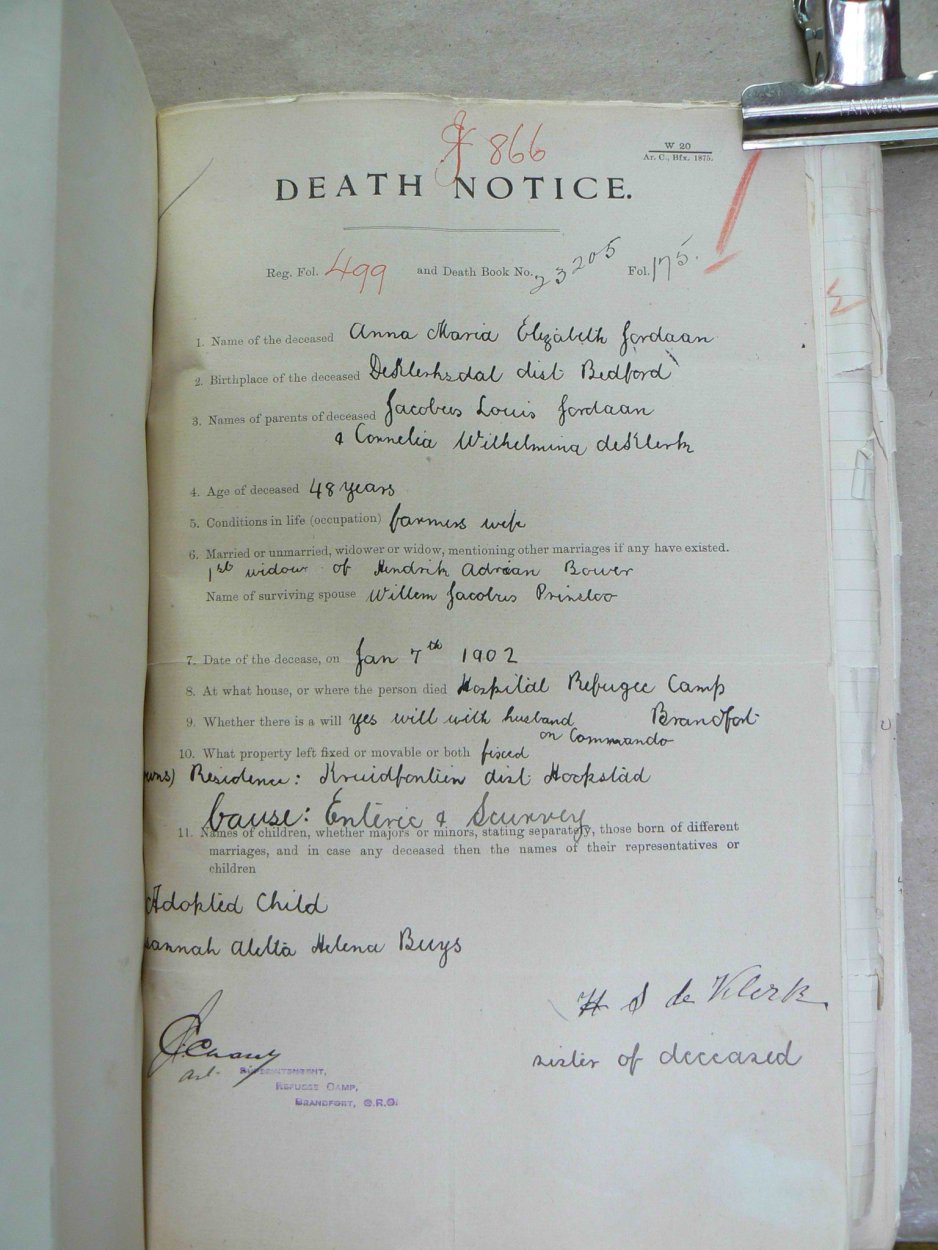 TAIWAN
J 866
W 20
Ar. C., Bfx. 1875.
DEATH NOTICE.
Reg. Fol. 499 and Death Book No. 23205 Fol. 175.
1. Name of the deceased Anna Maria Elizabeth Jordaan
2. Birthplace of the deceased DeKlerksdal dist Bedford
3. Names of parents of deceased Jacobus Louis Jordaan
& Cornelia Wilhelmina deKlerk
4. Age of deceased 48 years
5. Conditions in life (occupation) farmers wife
6. Married or unmarried, widower or widow, mentioning other marriages if any have existed.
1st widow of Hendrik Adrian Bower
Name of surviving spouse Willem Jacobus Prinsloo
7. Date of the decease, on Jan 7th 1902
8. At what house, or where the person died Hospital Refugee Camp
Brandfort
9. Whether there is a will yes will with husband
on Commando
10. What property left fixed or movable or both fixed
owns) Residence: Kruidfontein dist Hoekstad
Cause: Enteric & Scurvey
11. Names of children, whether majors or minors, stating separately, those born of different
marriages, and in case any deceased then the names of their representatives or
children
Adopted Child
annah Aletta Helena Buys
H S de Klerk
sister of deceased
act.
SUPERINTENDENT,
REFUGEE CAMP,
BRANDFORT, O.R.C.